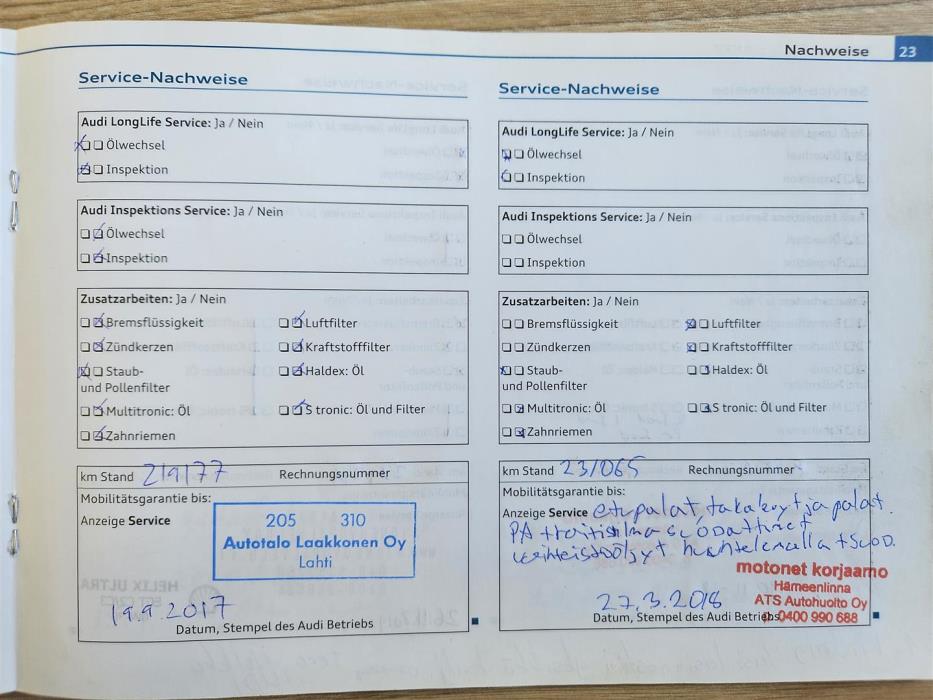 Nachweise 23
Service-Nachweise
Audi LongLife Service: Ja / Nein
Ölwechsel
Inspektion
Audi Inspektions Service: Ja / Nein
Ölwechsel
Inspektion
Zusatzarbeiten: Ja / Nein
Bremsflüssigkeit Luftfilter
Zündkerzen Kraftstofffilter
Staub- Haldex: Öl
und Pollenfilter
Multitronic: Öl S tronic: Öl und Filter
Zahnriemen
km Stand 219177 Rechnungsnummer
Mobilitätsgarantie bis:
Anzeige Service
205 310
Autotalo Laakkonen Oy
Lahti
19.9.2017
Datum, Stempel des Audi Betriebs
Service-Nachweise
Audi LongLife Service: Ja / Nein
Ölwechsel
Inspektion
Audi Inspektions Service: Ja / Nein
Ölwechsel
Inspektion
Zusatzarbeiten: Ja / Nein
Bremsflüssigkeit Luftfilter
Zündkerzen Kraftstofffilter
Staub- Haldex: Öl
und Pollenfilter
Multitronic: Öl S tronic: Öl und Filter
Zahnriemen
km Stand 231065 Rechnungsnummer
Mobilitätsgarantie bis:
Anzeige Service etupalat, takalevyt ja palat.
motonet korjaamo
Hämeenlinna
27.3.2018 ATS Autohuolto Oy
Datum, Stempel des Audi Betriebs p.0400 990 688